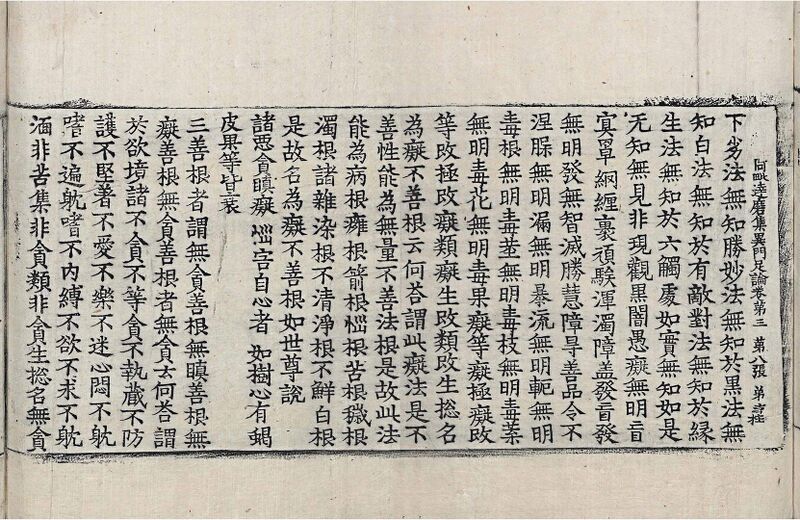 阿毗達磨集異門足論卷第三 第八張 弟
下劣法無知勝妙法無知於黑法無
知白法無知於有敵對法無知於縁
生法無知於六觸處如實無知如是
无知無見非現觀黑闇愚癡無明盲
寘罩網纏裹頑騃渾濁障盖發盲發
無明發無智滅勝慧障㝵善品令不
涅脲無明漏無明暴流無明軛無明
毒根無明毒莖無明毒枝無明毒葉
無明毒花無明毒果癡等癡極癡欧
等欧極欧癡類癡生欧類欧生捴名
為癡不善根云何荅謂此癡法是不
善性能為無量不善法根是故此法
能為病根癰根箭根惱根苦根穢根
濁根諸雜染根不清淨根不鮮白根
是故名為癡不善根如世尊說
諸惡貪瞋癡 惱害自心者 如樹心有蝎
皮果等皆衰
三善根者謂無貪善根無瞋善根無
癡善根無貪善根者無貪云何荅謂
於欲境諸不貪不等貪不執藏不防
護不堅著不愛不樂不迷心悶不躭
嗜不遍躭嗜不內縛不欲不求不躭
湎非苦集非貪類非貪生捴名無貪